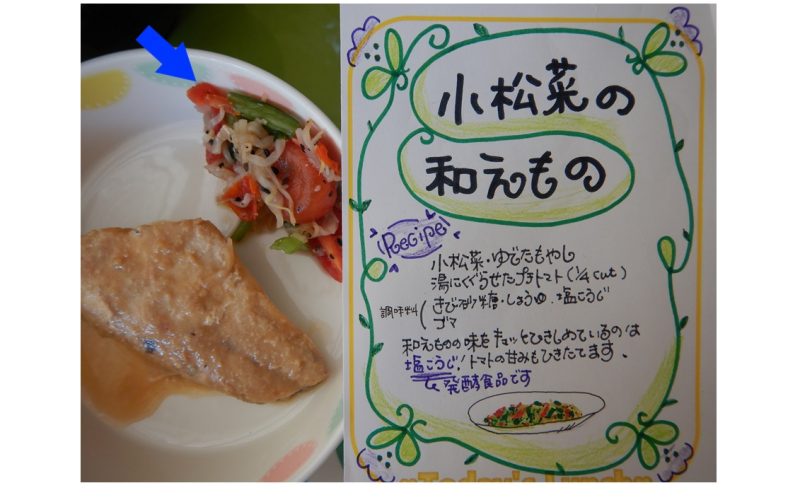 小松菜の
和えもの
Recipe
小松菜・ゆでたもやし
湯にくぐらせたプチトマト(1/4 cut)
調味料(きび砂糖・しょうゆ・塩こうじ
ゴマ
和えものの味をキュッとひきしめているのは
塩こうじ!トマトの甘みもひきたてます、
発酵食品です
"Today's Lunch"